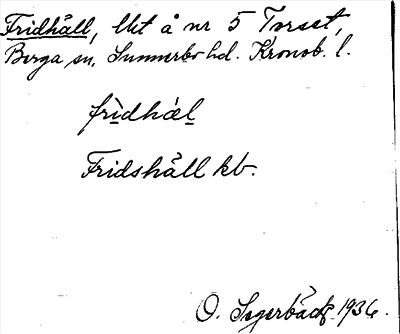 Fridhäll, lht å nr 5 Torset,
Berga sn, Sunnerbo hd. Kronob. l.
fridhäl
Fridshäll kb.
O. Segerbäck 1936.